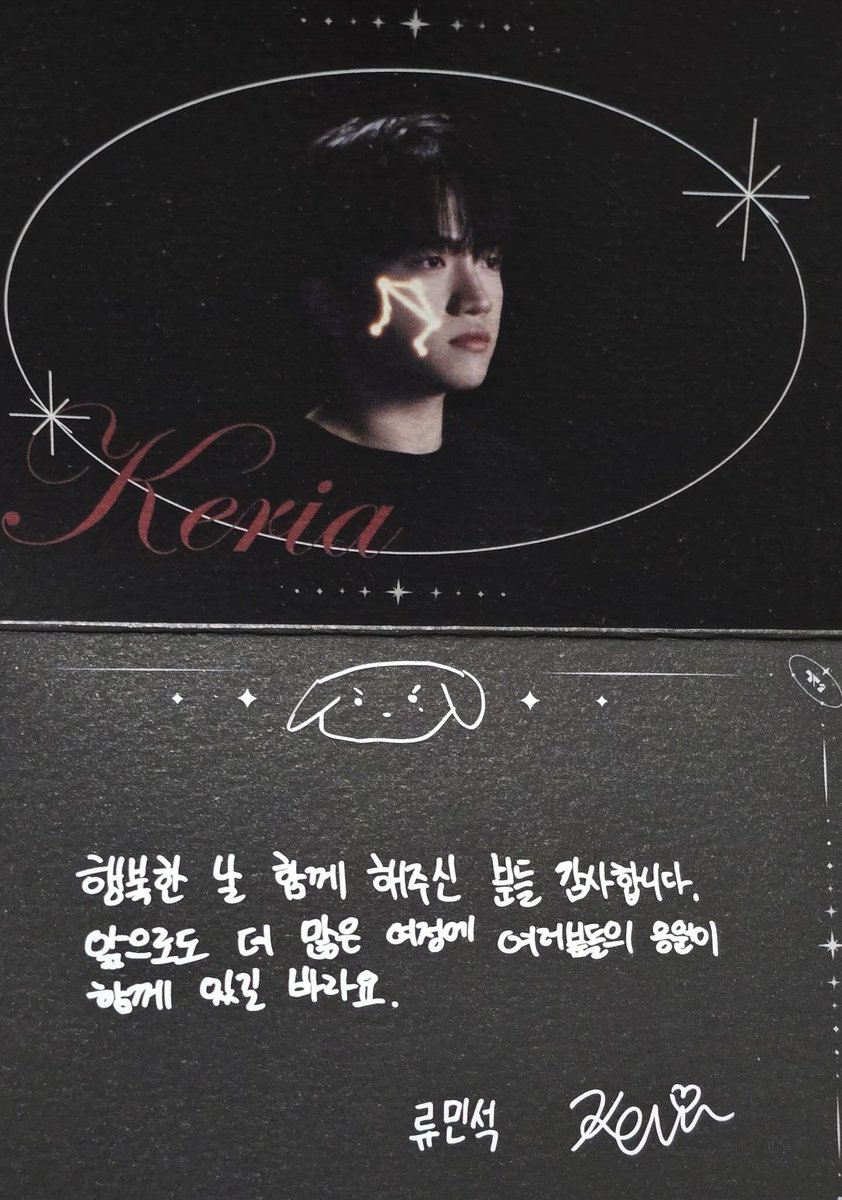 Keria
행복한 날 함께 해주신 분들 감사합니다.
앞으로도 더 많은 여정에 여러분들의 응원이
함께 있길 바라요.
류민석 Keria